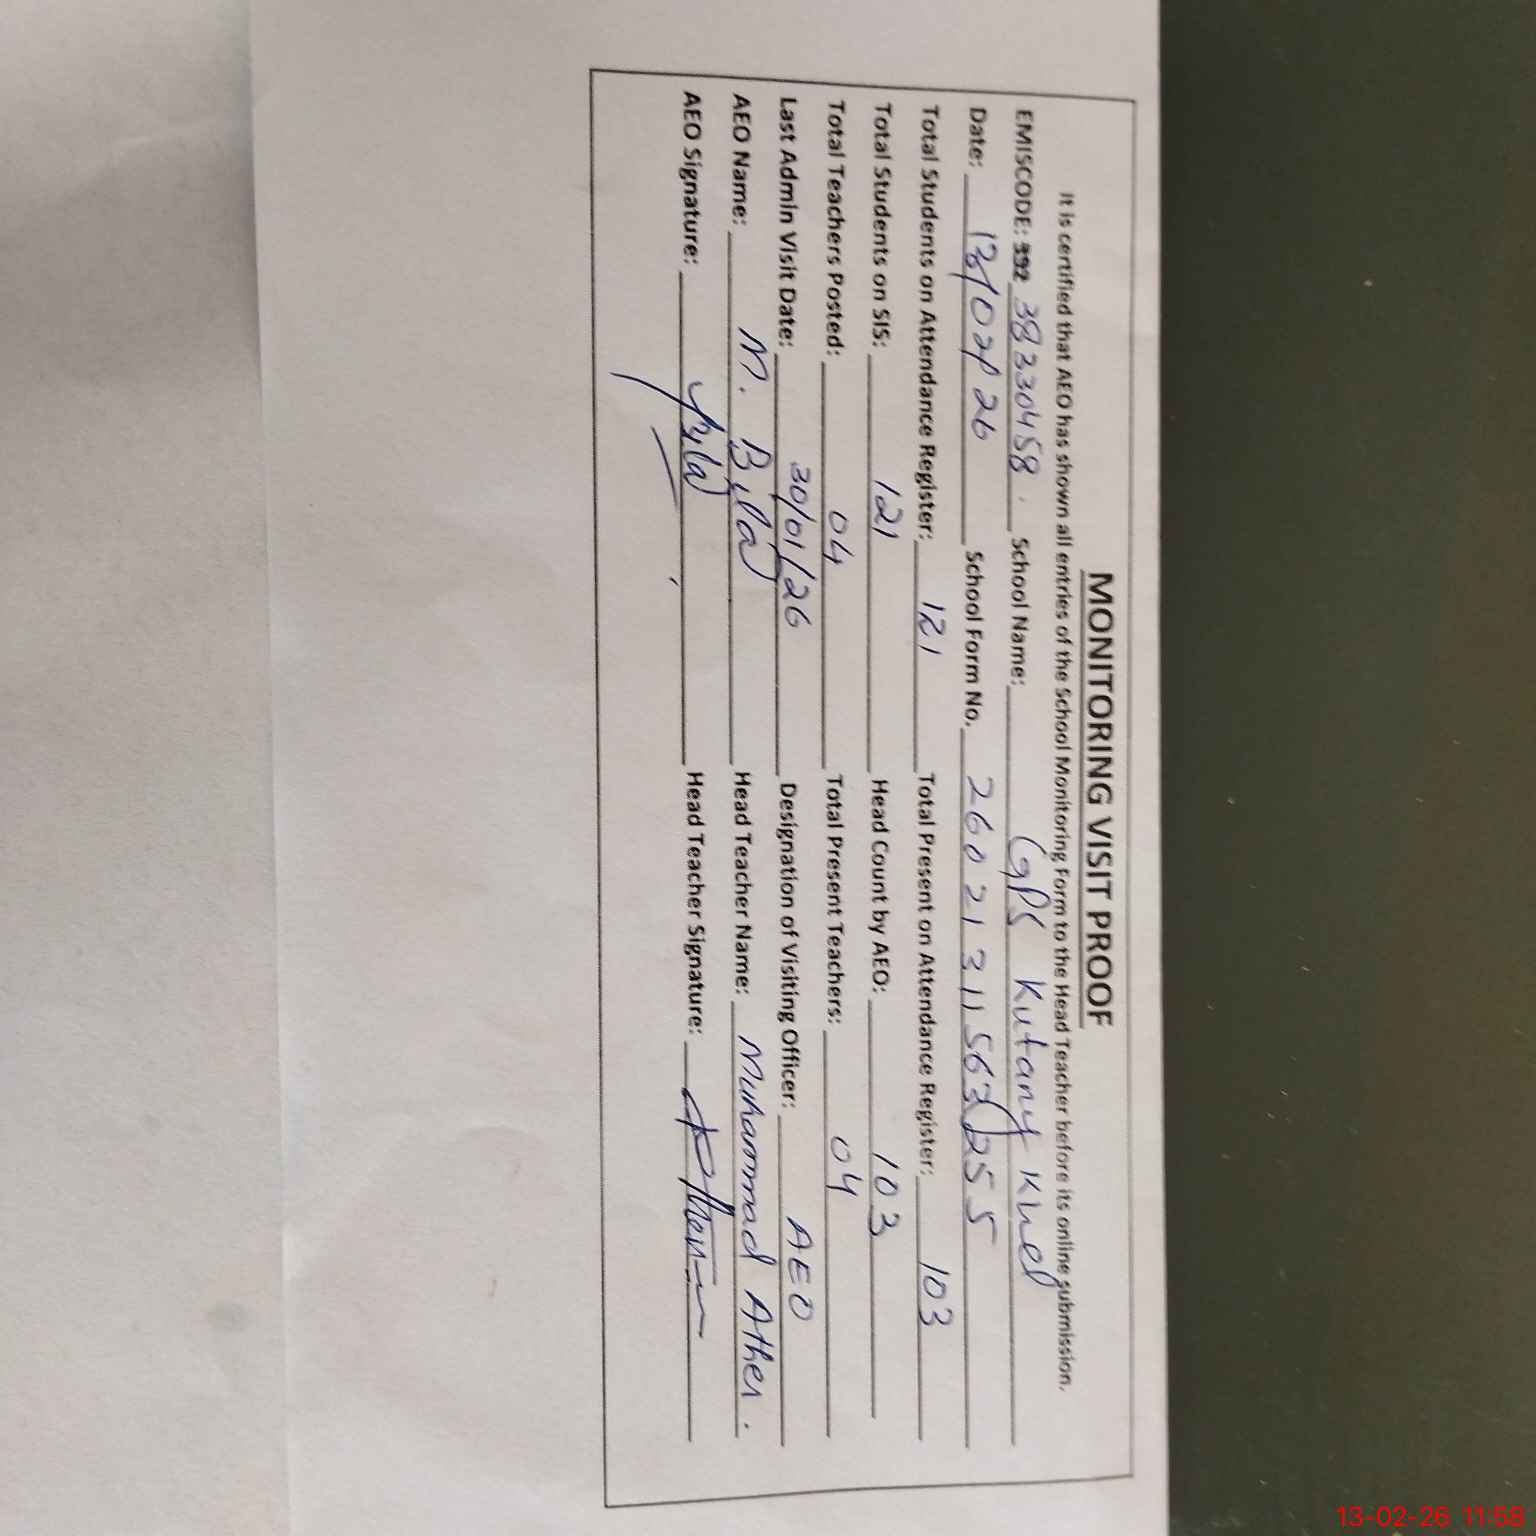 MONITORING VISIT PROOF
It is certified that AEO has shown all entries of the School Monitoring Form to the Head Teacher before its online submission.
EMISCODE: 38330458. School Name: GPS Kutany Khel
Date: 13/02/26 School Form No. 26021311563255
Total Students on Attendance Register: 121 Total Present on Attendance Register: 103
Total Students on SIS: 121 Head Count by AEO: 103
Total Teachers Posted: 04 Total Present Teachers: 04
Last Admin Visit Date: 30/01/26 Designation of Visiting Officer: AEO
AEO Name: M. Bilal Head Teacher Name: Muhammad Ather.
AEO Signature: Bilal Head Teacher Signature:
13-02-26 11:58